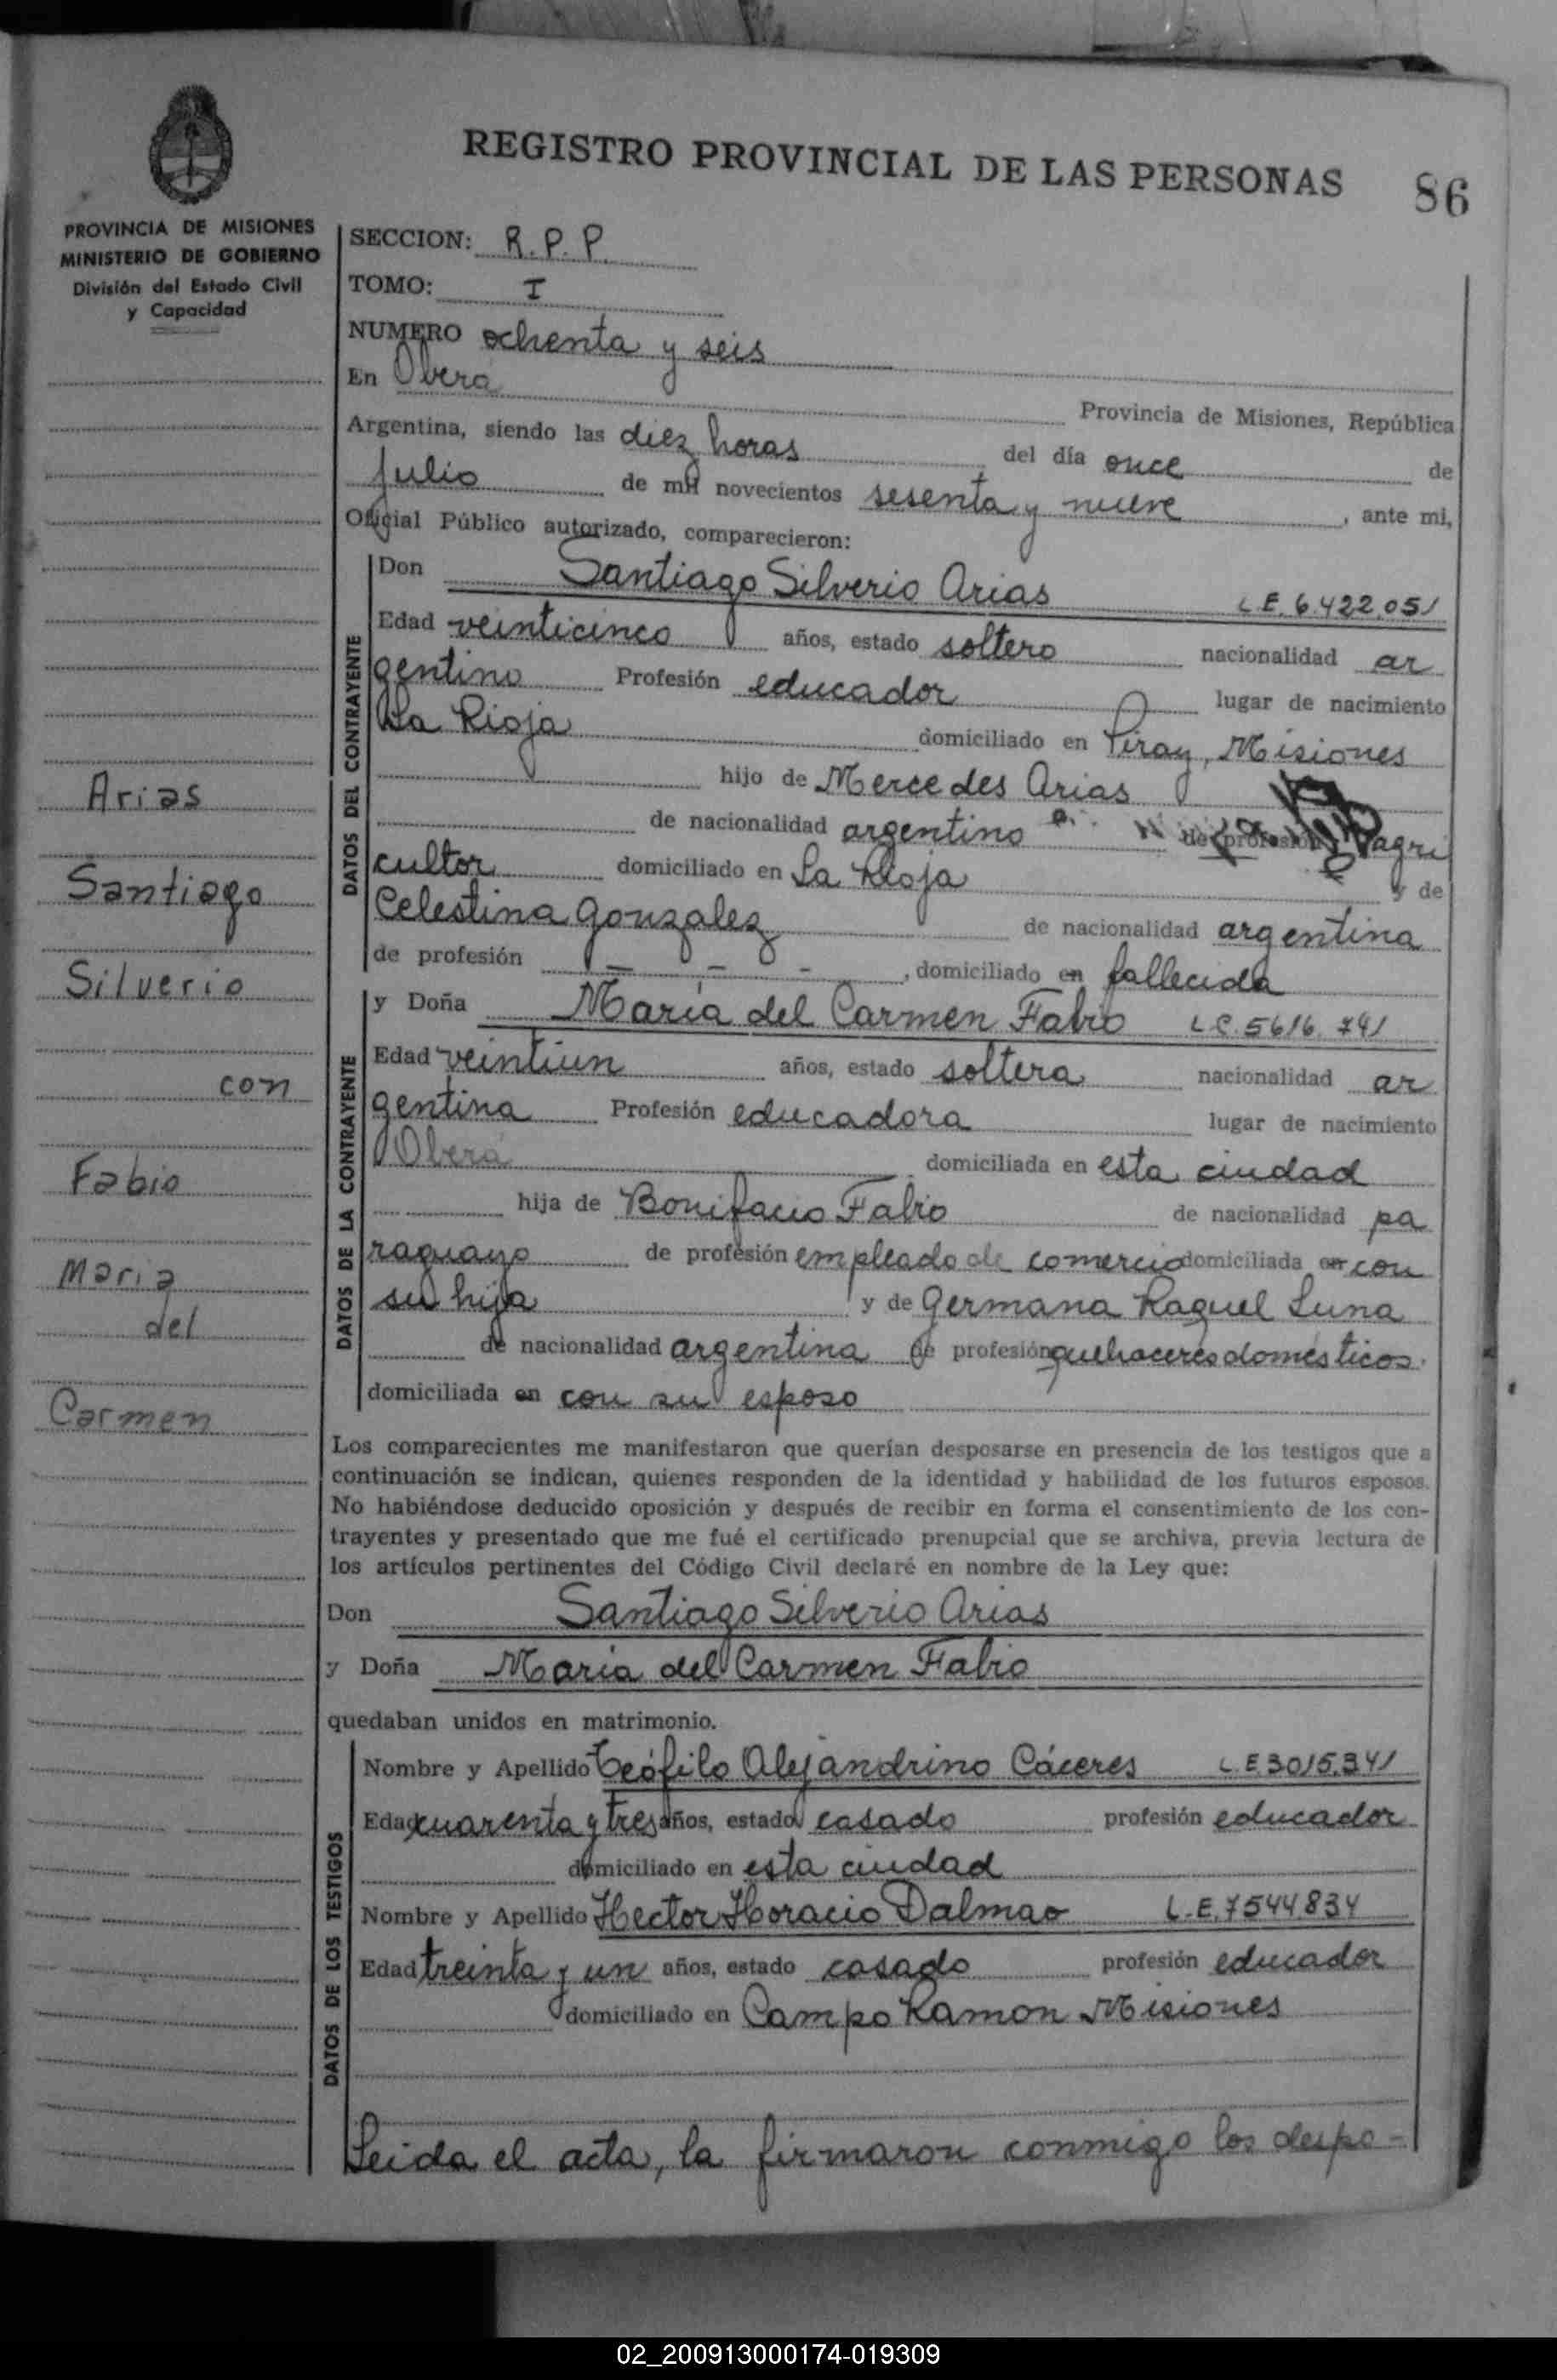 REGISTRO PROVINCIAL DE LAS PERSONAS 86
PROVINCIA DE MISIONES
MINISTERIO DE GOBIERNO
División del Estado Civil
y Capacidad
Arias
Santiago
Silverio
con
Fabio
Maria
del
Carmen
SECCION: R.P.P.
TOMO: I
NUMERO ochenta y seis
En Oberá Provincia de Misiones, República
Argentina, siendo las diez horas del día once de
julio de mil novecientos sesenta y nueve, ante mi,
Oficial Público autorizado, comparecieron:
DATOS DEL CONTRAYENTE
Don Santiago Silverio Arias L.E. 6.422.051
Edad veinticinco años, estado soltero nacionalidad ar
gentino Profesión educador lugar de nacimiento
La Rioja domiciliado en Piray, Misiones
hijo de Mercedes Arias
de nacionalidad argentino de profesión agri
cultor domiciliado en La Rioja y de
Celestina Gonzalez de nacionalidad argentina
de profesión - - -, domiciliado en fallecida
DATOS DE LA CONTRAYENTE
y Doña María del Carmen Fabio L.C. 5616.741
Edad veintiun años, estado soltera nacionalidad ar
gentina Profesión educadora lugar de nacimiento
Oberá domiciliada en esta ciudad
hija de Bonifacio Fabio de nacionalidad pa
raguayo de profesión empleado de comercio domiciliada en con
su hija y de Germana Raquel Luna
de nacionalidad argentina de profesión quehaceres domésticos.
domiciliada en con su esposo
Los comparecientes me manifestaron que querían desposarse en presencia de los testigos que a
continuación se indican, quienes responden de la identidad y habilidad de los futuros esposos.
No habiéndose deducido oposición y después de recibir en forma el consentimiento de los con-
trayentes y presentado que me fué el certificado prenupcial que se archiva, previa lectura de
los artículos pertinentes del Código Civil declaré en nombre de la Ley que:
Don Santiago Silverio Arias
y Doña María del Carmen Fabio
quedaban unidos en matrimonio.
DATOS DE LOS TESTIGOS
Nombre y Apellido Teófilo Alejandrino Cáceres L.E.3015.341
Edad cuarenta y tres años, estado casado profesión educador
domiciliado en esta ciudad
Nombre y Apellido Hector Horacio Dalmao L.E.7544834
Edad treinta y un años, estado casado profesión educador
domiciliado en Campo Ramon Misiones
Leida el acta, la firmaron conmigo los despo-
02_200913000174-019309